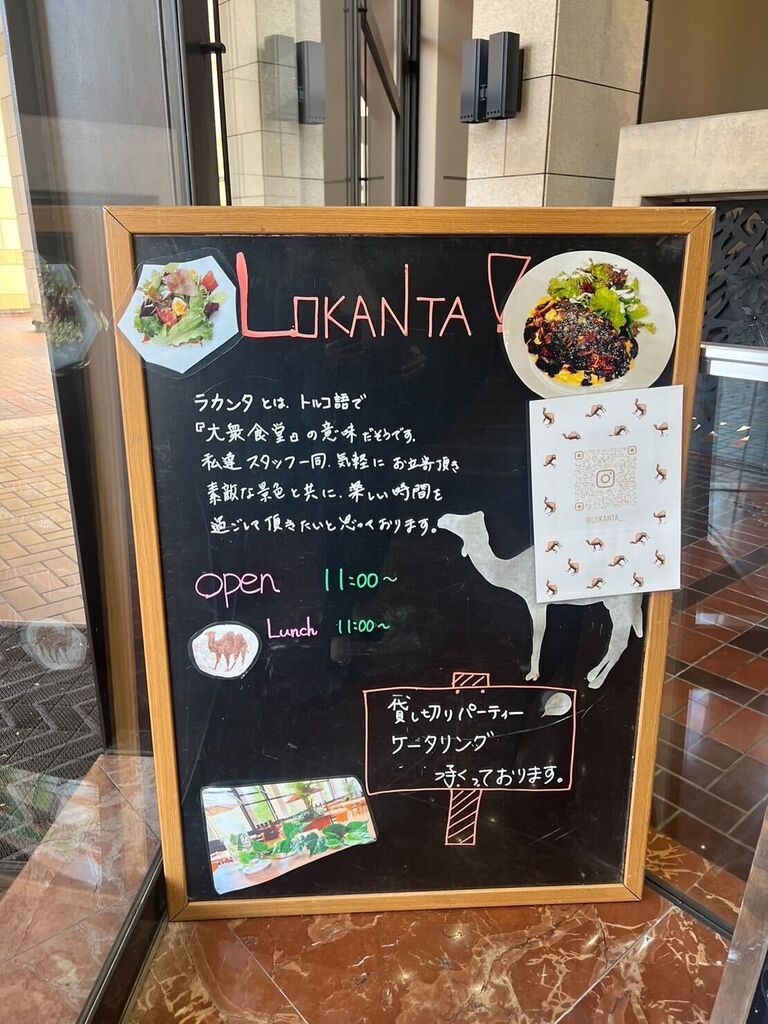 LOKANTA!
ラカンタとは、トルコ語で
『大衆食堂』の意味だそうです。
私達スタッフ一同、気軽にお立寄頂き
素敵な景色と共に、楽しい時間を
過ごして頂きたいと思っております。
@LOKANTA__
open 11:00~
Lunch 11:00~
貸し切りパーティー
ケータリング
承くっております。